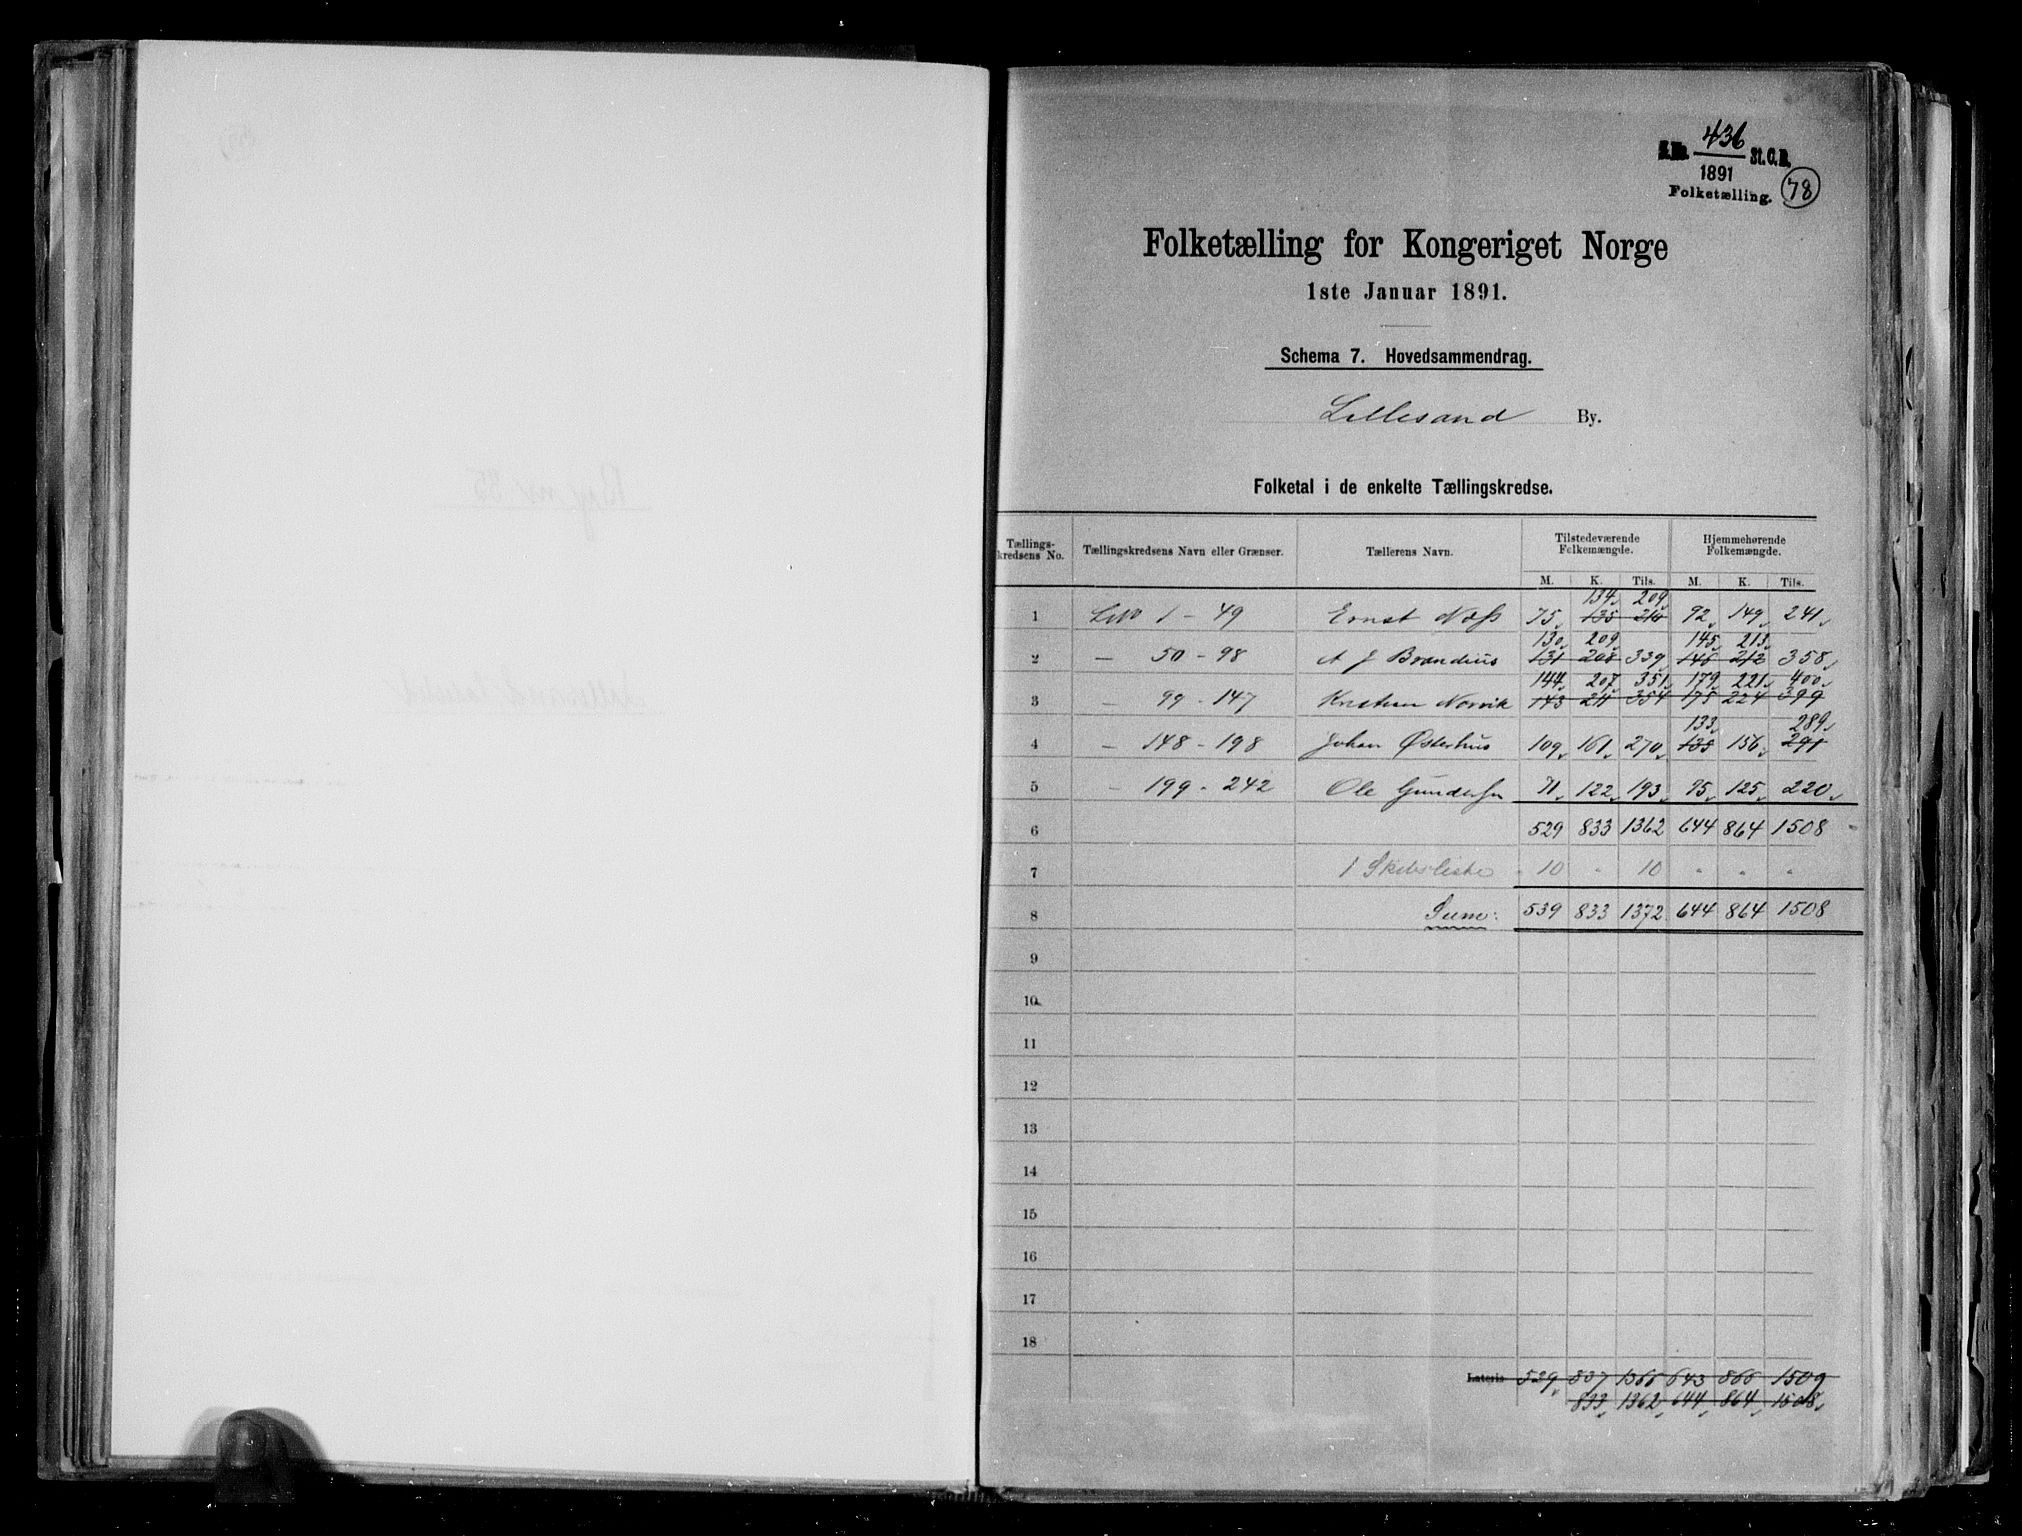 J.No. 436 St.C.B.
1891
Folketælling. 78
Folketælling for Kongeriget Norge
1ste Januar 1891.
Schema 7. Hovedsammendrag.
Lillesand By.
Folketal i de enkelte Tællingskredse.
Tællings-kredsens No. Tællingskredsens Navn eller Grænser. Tællerens Navn. Tilstedeværende Folkemængde. Hjemmehørende Folkemængde.
M. K. Tils. M. K. Tils.
134 209
1 1 - 49 Ernst Næss 75 135 210 92 149 241
130 209 145 213
2 — 50 - 98 A J Brandius 131 208 339 146 212 358
144 207 351 179 221 400
3 — 99 - 147 Kristian Norvik 143 211 354 175 224 399
133 289
4 — 148 - 198 Johan Østerhus 109 161 270 135 156 291
5 — 199 - 242 Ole Gundersen 71 122 193 95 125 220
6 529 833 1362 644 864 1508
7 1 Skibsliste 10 " 10 " " "
8 Sum: 539 833 1372 644 864 1508
9
10
11
12
13
14
15
16
17
18
Lateris 529 837 1366 643 866 1509
833 1362 644 864 1508